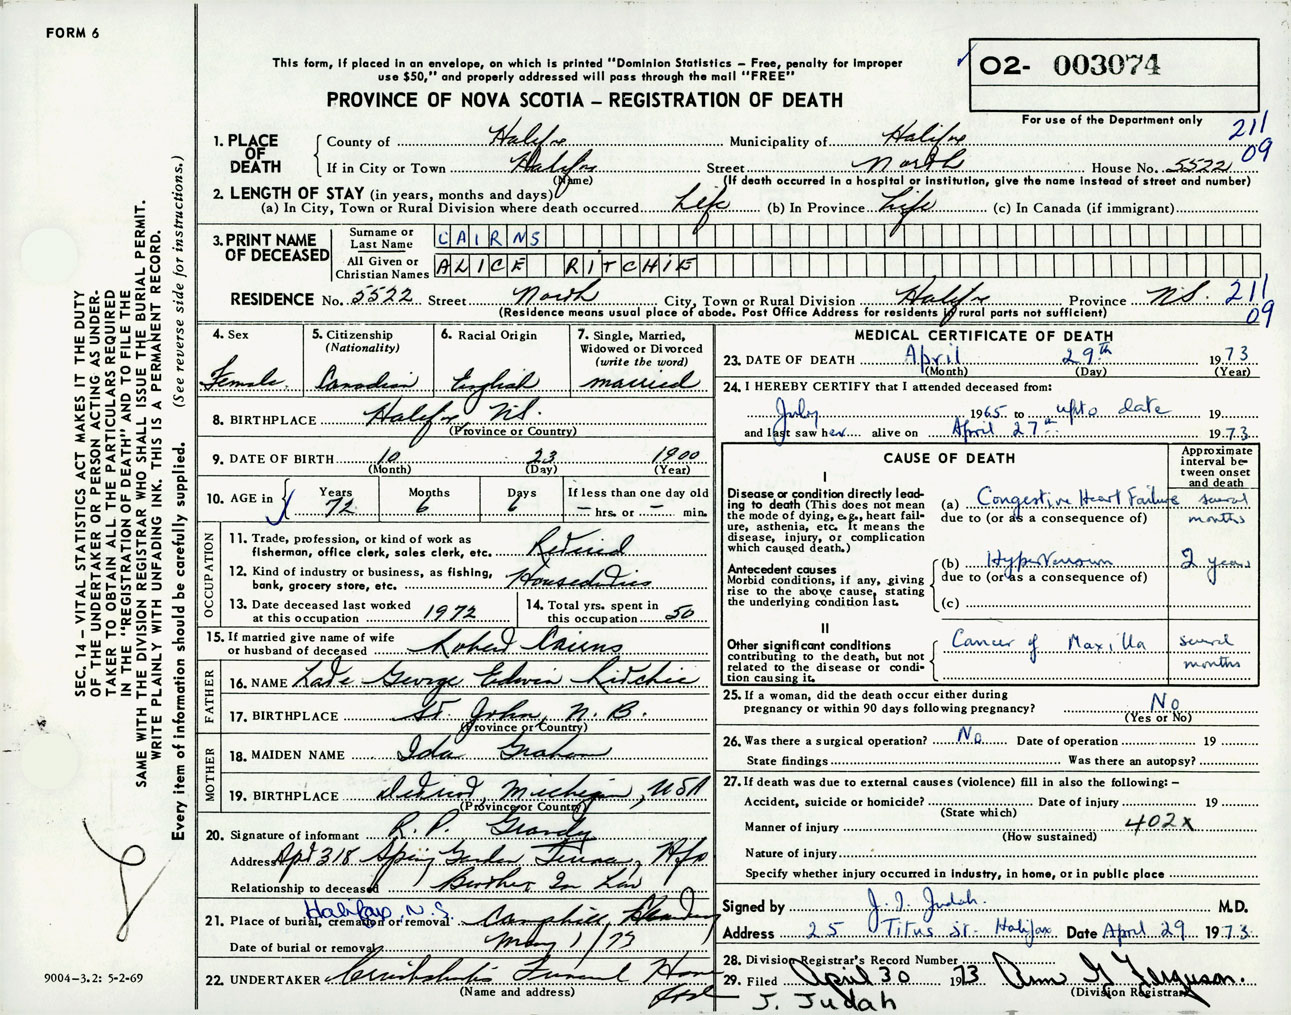 FORM 6
This form, if placed in an envelope, on which is printed "Dominion Statistics – Free, penalty for improper
use $50," and properly addressed will pass through the mail "FREE"
PROVINCE OF NOVA SCOTIA – REGISTRATION OF DEATH
02- 003074
For use of the Department only
211
09
1. PLACE OF DEATH
County of Halifax Municipality of Halifax
If in City or Town Halifax Street North House No. 5522
(Name) (If death occurred in a hospital or institution, give the name instead of street and number)
2. LENGTH OF STAY (in years, months and days)
(a) In City, Town or Rural Division where death occurred Life (b) In Province Life (c) In Canada (if immigrant)
3. PRINT NAME OF DECEASED
Surname or Last Name CAIRNS
All Given or Christian Names ALICE RITCHIE
RESIDENCE No. 5522 Street North City, Town or Rural Division Halifax Province N.S. 211
09
(Residence means usual place of abode. Post Office Address for residents in rural parts not sufficient)
4. Sex
Female
5. Citizenship
(Nationality)
Canadian
6. Racial Origin
English
7. Single, Married,
Widowed or Divorced
(write the word)
married
8. BIRTHPLACE Halifax N.S.
(Province or Country)
9. DATE OF BIRTH 10 23 1900
(Month) (Day) (Year)
10. AGE in
Years Months Days If less than one day old
72 6 6 – hrs. or – min.
OCCUPATION
11. Trade, profession, or kind of work as
fisherman, office clerk, sales clerk, etc. Retired
12. Kind of industry or business, as fishing,
bank, grocery store, etc. Houseduties
13. Date deceased last worked
at this occupation 1972
14. Total yrs. spent in
this occupation 50
15. If married give name of wife
or husband of deceased Robert Cairns
FATHER
16. NAME Late George Edwin Ritchie
17. BIRTHPLACE St. John, N.B.
(Province or Country)
MOTHER
18. MAIDEN NAME Ida Graham
19. BIRTHPLACE Detroit Michigan, USA
(Province or Country)
20. Signature of informant R. P. Grandy
Address Apt 318 Spring Garden Terrace, Hfx
Relationship to deceased Brother In Law
21. Place of burial, cremation or removal Halifax, N.S. Camphill,
Date of burial or removal May 1/73
22. UNDERTAKER Cruikshanks Funeral Home
(Name and address)
MEDICAL CERTIFICATE OF DEATH
23. DATE OF DEATH April 29th 1973
(Month) (Day) (Year)
24. I HEREBY CERTIFY that I attended deceased from:
July 1965 to upto date 19
and last saw her alive on April 27th 1973
CAUSE OF DEATH
Approximate
interval be-
tween onset
and death
I
Disease or condition directly lead-
ing to death (This does not mean
the mode of dying, e.g., heart fail-
ure, asthenia, etc. It means the
disease, injury, or complication
which caused death.)
(a) Congestive Heart Failure several
due to (or as a consequence of) months
Antecedent causes
Morbid conditions, if any, giving
rise to the above cause, stating
the underlying condition last.
(b) Hypertension 2 years
due to (or as a consequence of)
(c)
II
Other significant conditions
contributing to the death, but not
related to the disease or condi-
tion causing it.
Cancer of Maxilla several
months
25. If a woman, did the death occur either during
pregnancy or within 90 days following pregnancy? No
(Yes or No)
26. Was there a surgical operation? No Date of operation 19
State findings Was there an autopsy?
27. If death was due to external causes (violence) fill in also the following: –
Accident, suicide or homicide? Date of injury 19
(State which)
Manner of injury 402x
(How sustained)
Nature of injury
Specify whether injury occurred in industry, in home, or in public place
Signed by J. I. Judah. M.D.
Address 25 Titus St. Halifax Date April 29 1973
28. Division Registrar's Record Number
29. Filed April 30 1973 Ann G Ferguson.
(Division Registrar)
J. JUDAH
SEC. 14 – VITAL STATISTICS ACT MAKES IT THE DUTY
OF THE UNDERTAKER OR PERSON ACTING AS UNDER-
TAKER TO OBTAIN ALL THE PARTICULARS REQUIRED
IN THE "REGISTRATION OF DEATH" AND TO FILE THE
SAME WITH THE DIVISION REGISTRAR WHO SHALL ISSUE THE BURIAL PERMIT.
WRITE PLAINLY WITH UNFADING INK. THIS IS A PERMANENT RECORD.
Every item of information should be carefully supplied. (See reverse side for instructions.)
9004–3.2: 5-2-69